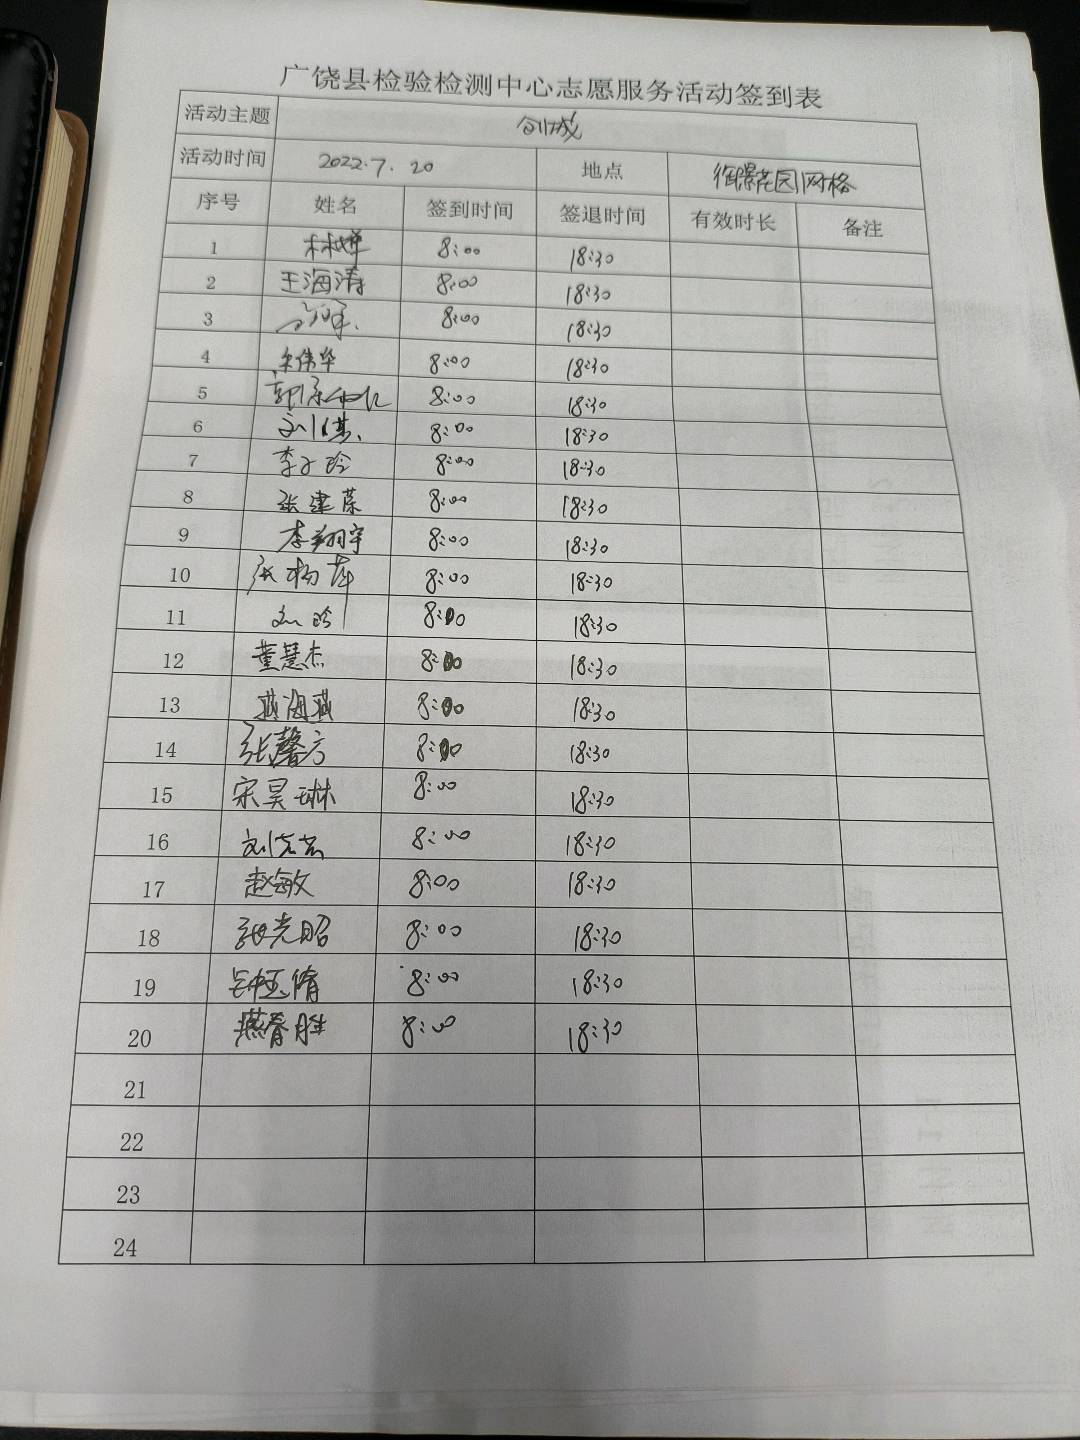 广饶县检验检测中心志愿服务活动签到表
活动主题 创城
活动时间 2022.7.20 地点 御景花园网格
序号 姓名 签到时间 签退时间 有效时长 备注
1 8:00 18:30
2 王海涛 8:00 18:30
3 8:00 18:30
4 8:00 18:30
5 8:00 18:30
6 8:00 18:30
7 李子玲 8:00 18:30
8 张建荣 8:00 18:30
9 李翔宇 8:00 18:30
10 张杨萍 8:00 18:30
11 刘玲 8:00 18:30
12 董慧杰 8:00 18:30
13 8:00 18:30
14 张馨方 8:00 18:30
15 宋昊琳 8:00 18:30
16 8:00 18:30
17 赵敏 8:00 18:30
18 张光昭 8:00 18:30
19 8:00 18:30
20 8:00 18:30
21
22
23
24